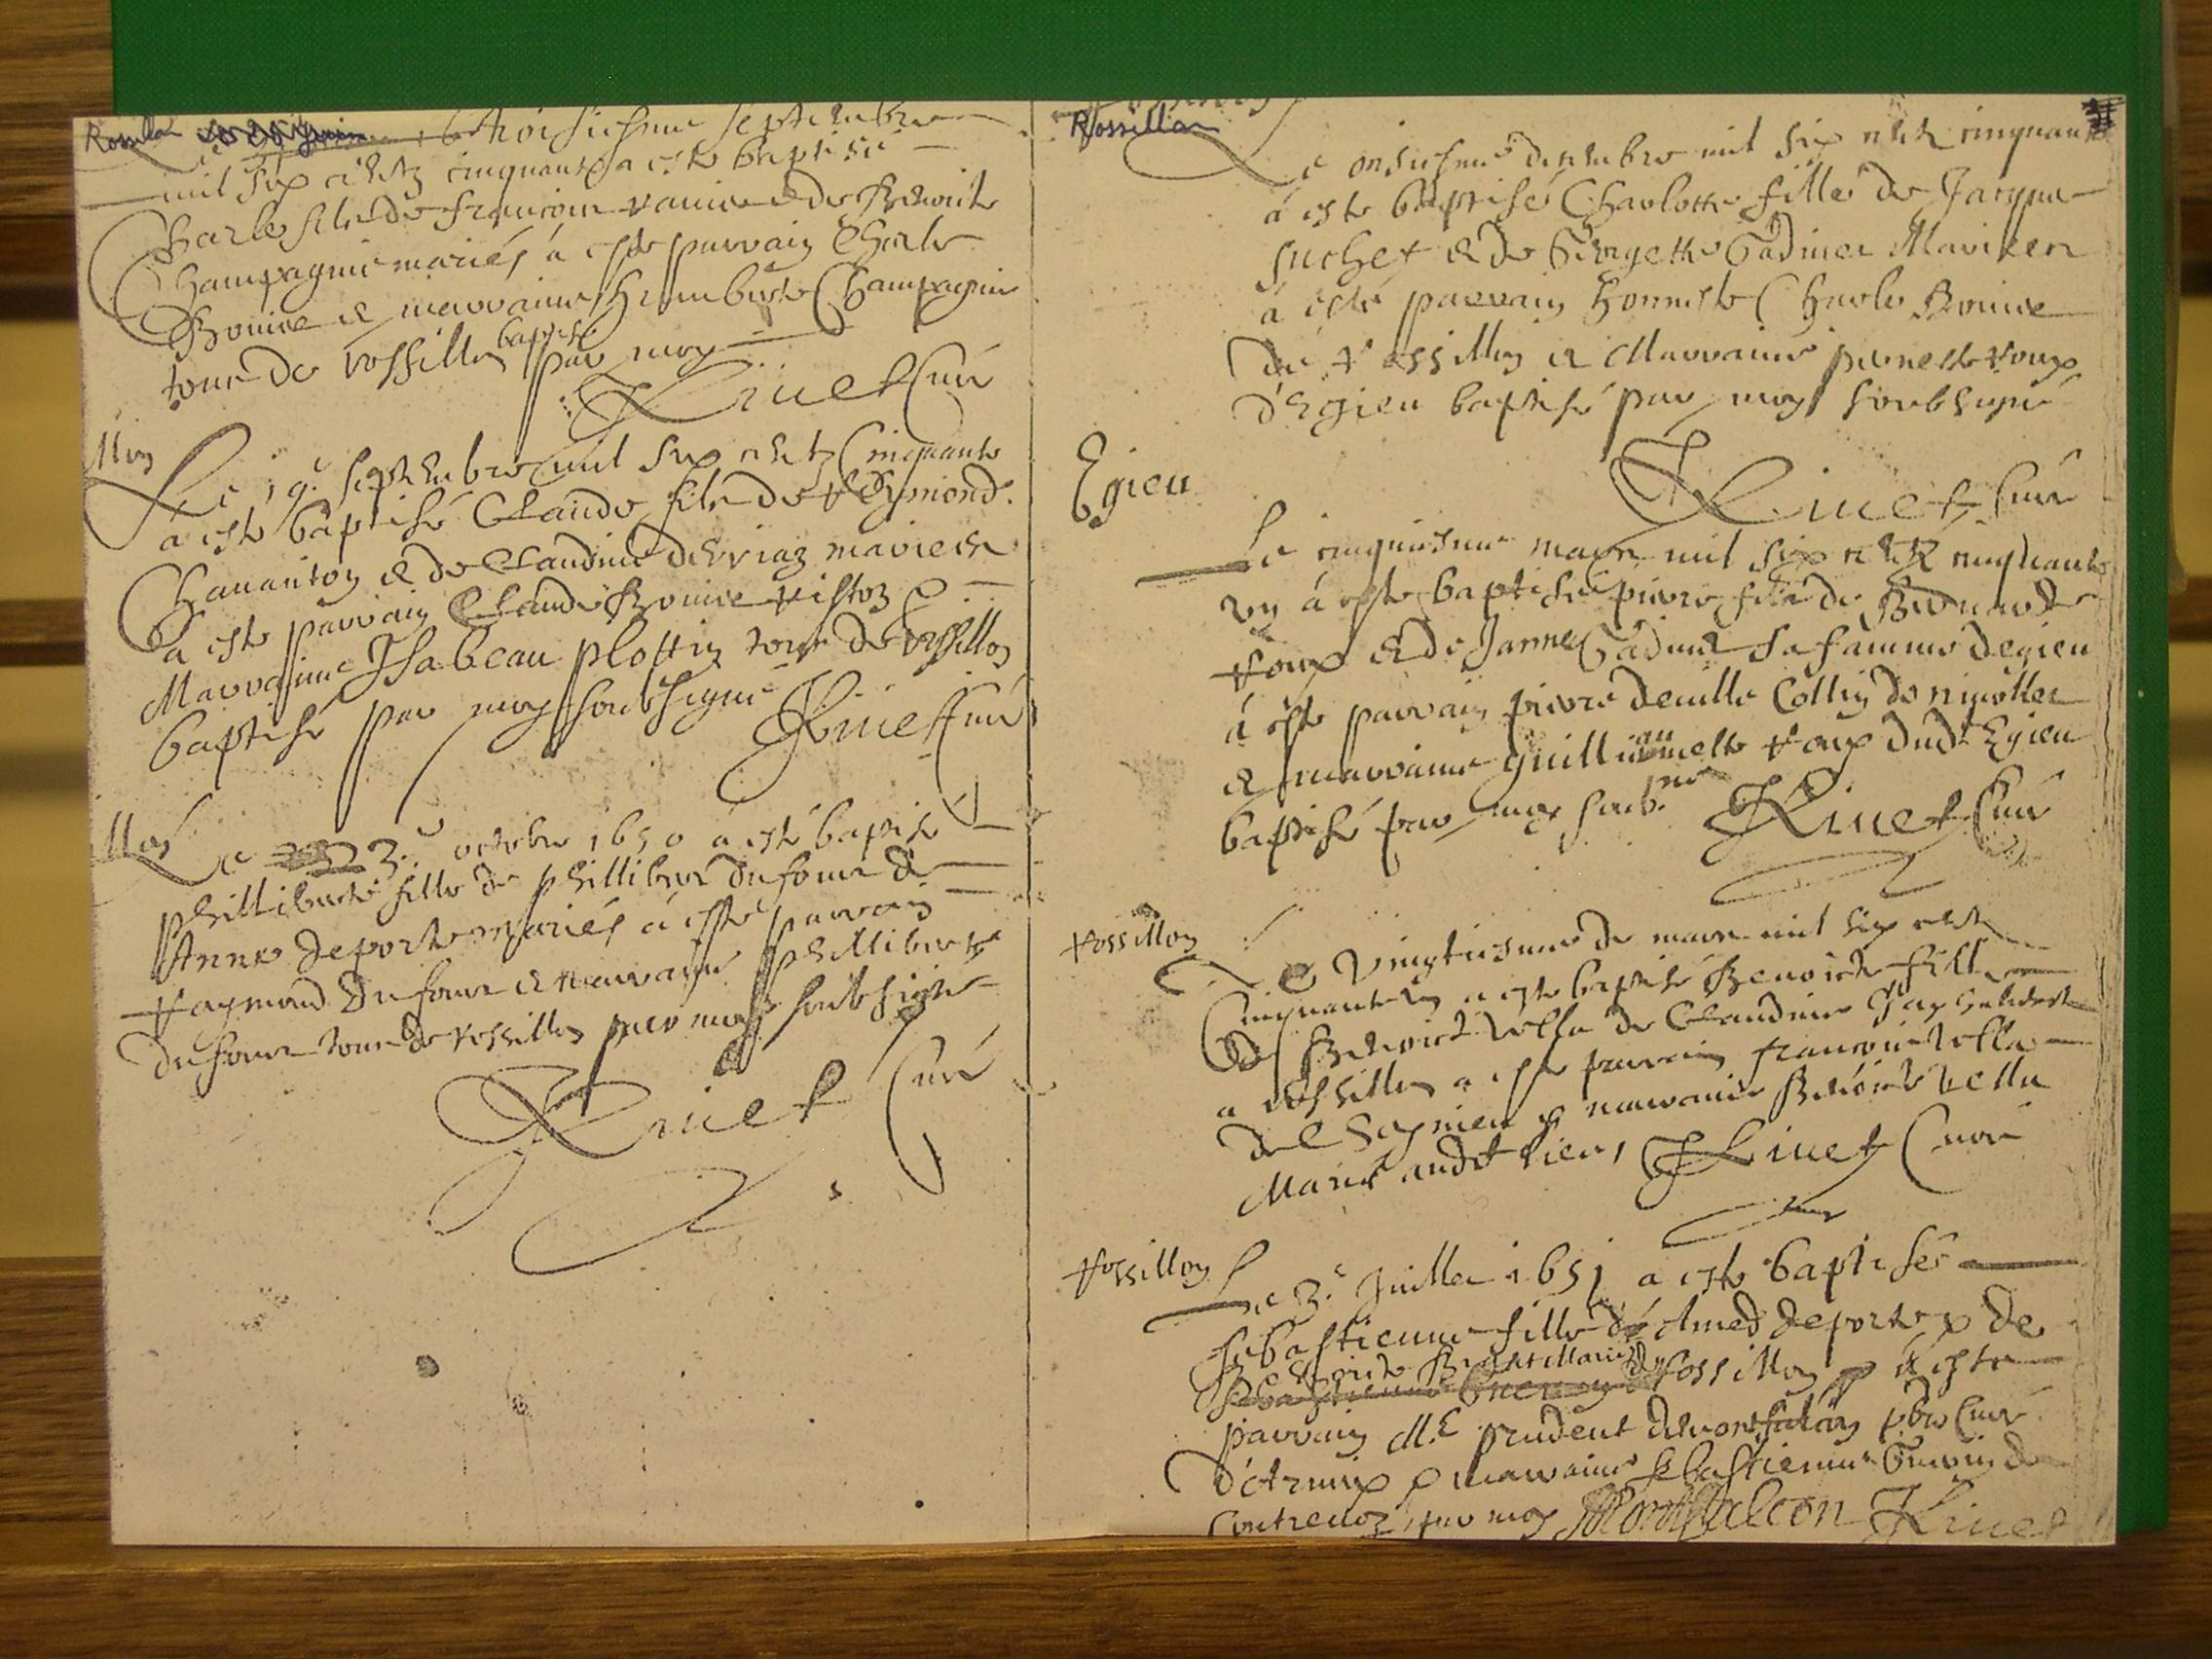 Rossillon
Le troisiesme septembre
mil six centz cinquante a este baptisé
Charles fils de françois et de Benoite
Champagnie mariés à esté parrain Charle
Bonive & marraine humberte Champagnie
tous de rossillon baptisé par moy
Rivet curé
llon
Le 19e septembre mil six centz cinquante
a este baptisé Claude fils de reymond
Chananton & de Claudine mariees
a este parrain Claude Bonive
Marraine Isabeau plottin tous de rossillon
baptisé par moy soubsigné Rivet curé
llon
Le 3e octobre 1650 a esté baptisé
philliberte fille de phillibert dufour &
Anne deporte mariés à esté parrain
raymond dufour & marraine philliberte
dufour tous de rossillon par moy soubsigné
Rivet Curé
Rossillon
Le onsiesme decembre mil six centz cinquante
à este baptisé Charlotte fille de Jacque
suchet & de Georgette Gadiner Maries
à esté parrain honneste Charle Bonive
de rossillon & Marraine pernette roux
d'Egieu baptisé par moy soubsigné
Rivet Curé
Egieu
Le cinquiesme mars mil six centz cinquante
vn à este baptisé pierre fils de Bernard
roux & de Janne Gadiner sa famme degieu
à este parrain pierre deville Collin
& marraine guilliaumette roux dudt Egieu
baptisé par moy soubné Rivet Curé
rossillon
Le vingtiesme de mars mil six centz
Cinquante vn a este baptisé Benoite fille
de Benoict vella & Claudine
a rossillon a este parrain françois vella
de & marraine Benoite vella
Mariés audt lieu, Rivet Curé
rossillon
Le 3e Juillet 1651 a este baptisée
sebastienne fille de Amed deporte & de
Benoite de rossillon & a este
parrain Me prudent demontfalcon pbre Curé
d'Armix & marraine sebastienne de
Contrevoz, par moy Montfalcon Rivet